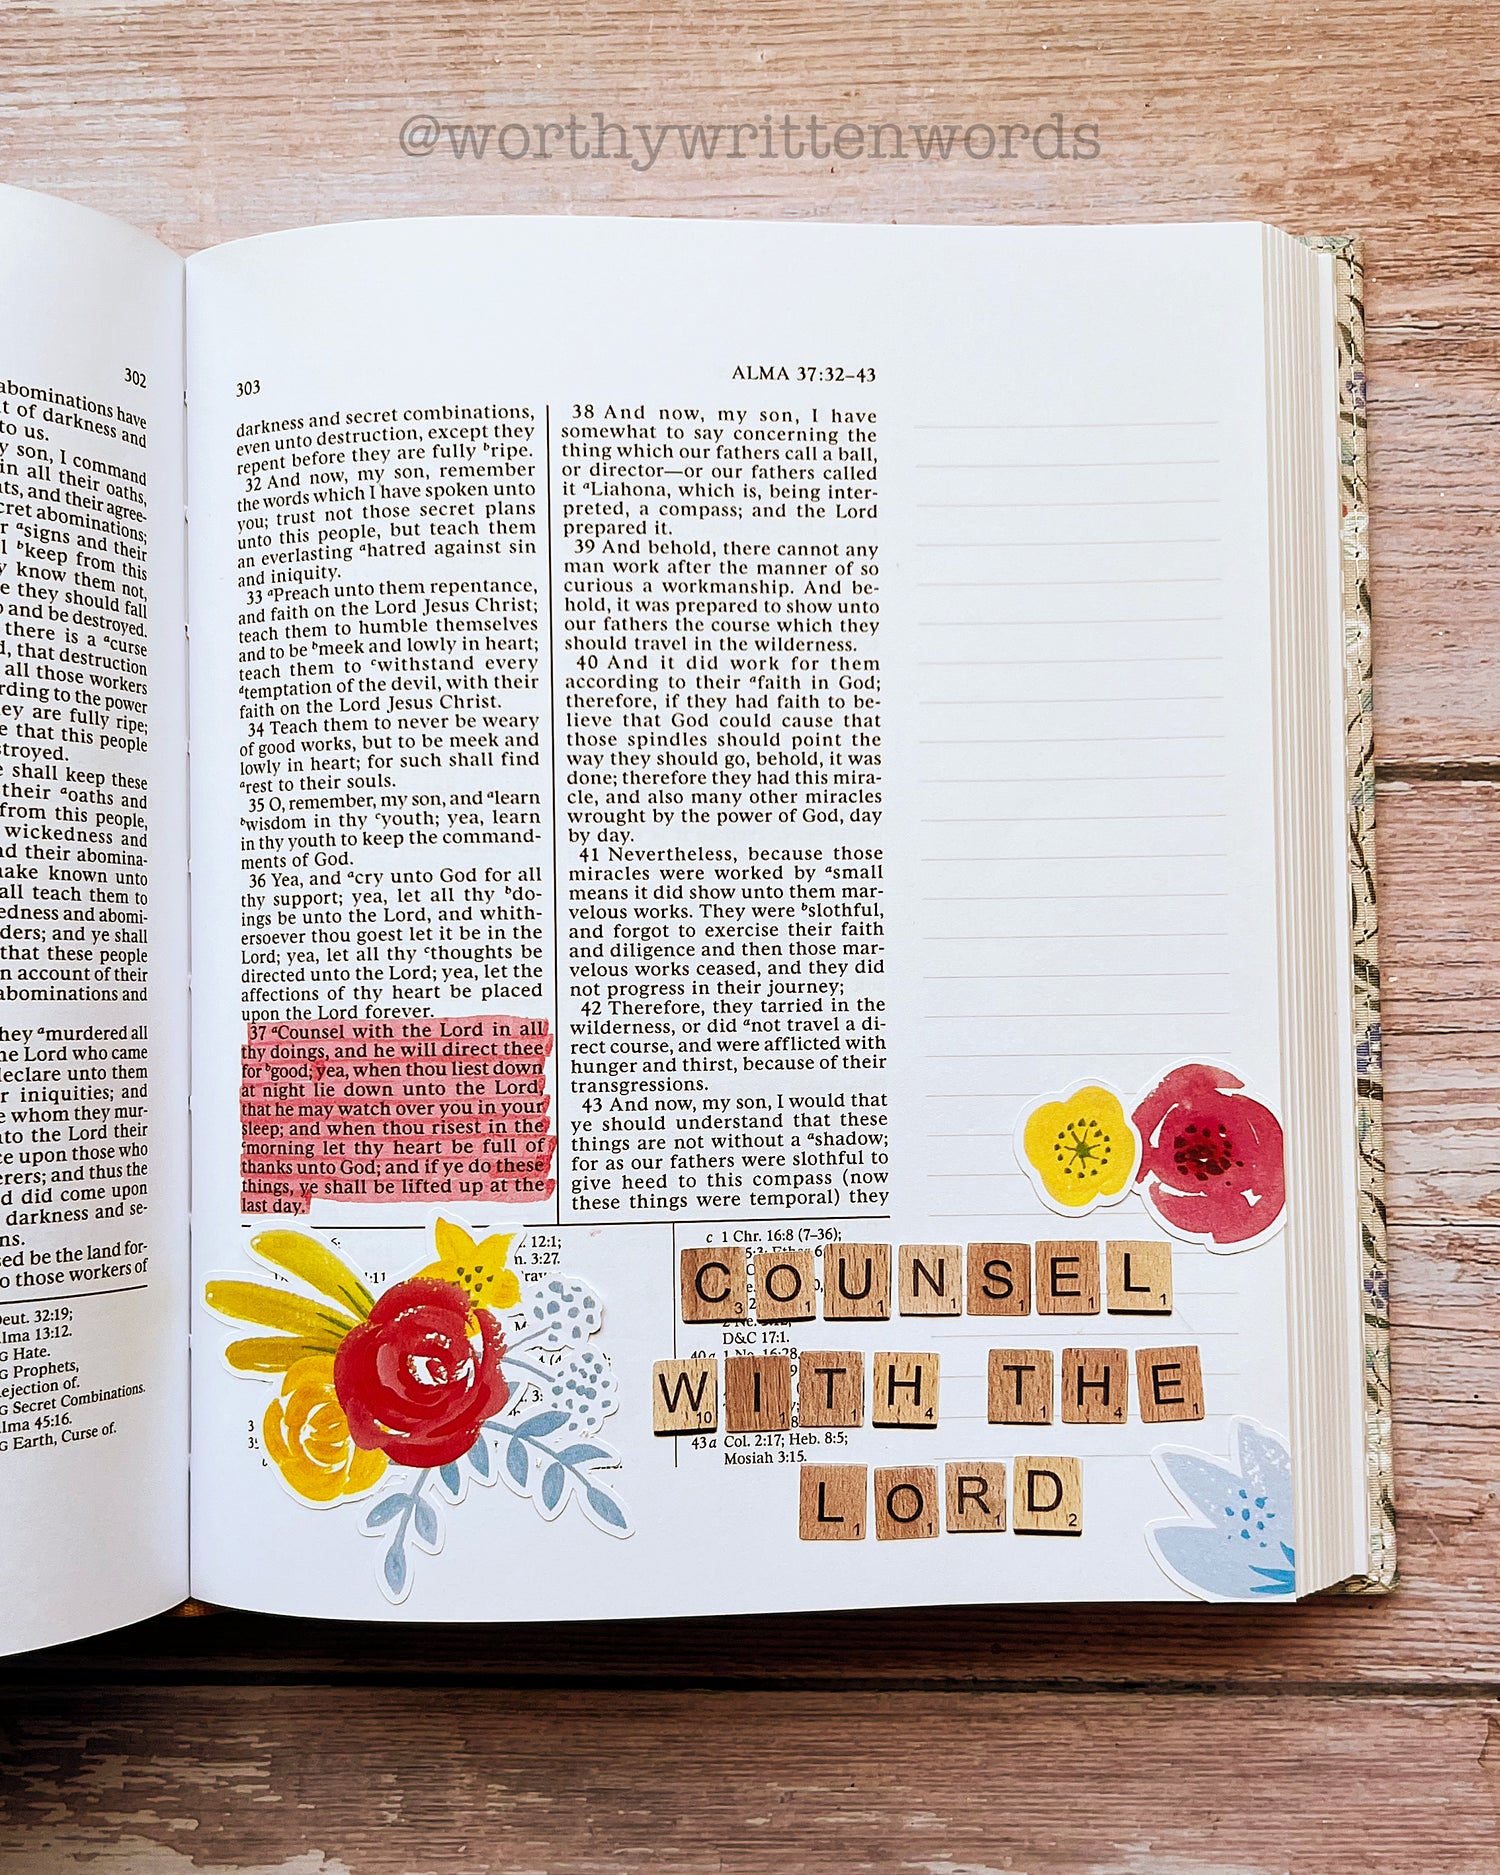 @worthywrittenwords
302
abominations have
t of darkness and
to us.
y son, I command
in all their oaths,
ts, and their agree-
cret abominations;
r ᵃsigns and their
l ᵇkeep from this
y know them not,
e they should fall
o and be destroyed.
there is a ᵃcurse
d, that destruction
all those workers
rding to the power
ey are fully ripe;
e that this people
stroyed.
e shall keep these
their ᵃoaths and
from this people,
wickedness and
nd their abomina-
ake known unto
all teach them to
edness and abomi-
ders; and ye shall
that these people
n account of their
abominations and
hey ᵃmurdered all
he Lord who came
declare unto them
r iniquities; and
e whom they mur-
nto the Lord their
ce upon those who
erers; and thus the
d did come upon
darkness and se-
ns.
sed be the land for-
o those workers of
Deut. 32:19;
lma 13:12.
G Hate.
G Prophets,
ejection of.
G Secret Combinations.
lma 45:16.
G Earth, Curse of.
303
ALMA 37:32–43
darkness and secret combinations,
even unto destruction, except they
repent before they are fully ᵇripe.
32 And now, my son, remember
the words which I have spoken unto
you; trust not those secret plans
unto this people, but teach them
an everlasting ᵃhatred against sin
and iniquity.
33 ᵃPreach unto them repentance,
and faith on the Lord Jesus Christ;
teach them to humble themselves
and to be ᵇmeek and lowly in heart;
teach them to ᶜwithstand every
ᵈtemptation of the devil, with their
faith on the Lord Jesus Christ.
34 Teach them to never be weary
of good works, but to be meek and
lowly in heart; for such shall find
ᵃrest to their souls.
35 O, remember, my son, and ᵃlearn
ᵇwisdom in thy ᶜyouth; yea, learn
in thy youth to keep the command-
ments of God.
36 Yea, and ᵃcry unto God for all
thy support; yea, let all thy ᵇdo-
ings be unto the Lord, and whith-
ersoever thou goest let it be in the
Lord; yea, let all thy ᶜthoughts be
directed unto the Lord; yea, let the
affections of thy heart be placed
upon the Lord forever.
37 ᵃCounsel with the Lord in all
thy doings, and he will direct thee
for ᵇgood; yea, when thou liest down
at night lie down unto the Lord,
that he may watch over you in your
sleep; and when thou risest in the
ᶜmorning let thy heart be full of
thanks unto God; and if ye do these
things, ye shall be lifted up at the
last day.
38 And now, my son, I have
somewhat to say concerning the
thing which our fathers call a ball,
or director—or our fathers called
it ᵃLiahona, which is, being inter-
preted, a compass; and the Lord
prepared it.
39 And behold, there cannot any
man work after the manner of so
curious a workmanship. And be-
hold, it was prepared to show unto
our fathers the course which they
should travel in the wilderness.
40 And it did work for them
according to their ᵃfaith in God;
therefore, if they had faith to be-
lieve that God could cause that
those spindles should point the
way they should go, behold, it was
done; therefore they had this mira-
cle, and also many other miracles
wrought by the power of God, day
by day.
41 Nevertheless, because those
miracles were worked by ᵃsmall
means it did show unto them mar-
velous works. They were ᵇslothful,
and forgot to exercise their faith
and diligence and then those mar-
velous works ceased, and they did
not progress in their journey;
42 Therefore, they tarried in the
wilderness, or did ᵃnot travel a di-
rect course, and were afflicted with
hunger and thirst, because of their
transgressions.
43 And now, my son, I would that
ye should understand that these
things are not without a ᵃshadow;
for as our fathers were slothful to
give heed to this compass (now
these things were temporal) they
12:1;
n. 3:27.
c 1 Chr. 16:8 (7–36);
D&C 17.1.
40a 1 Ne. 16:28
43a Col. 2:17; Heb. 8:5;
Mosiah 3:15.
COUNSEL
WITH THE
LORD